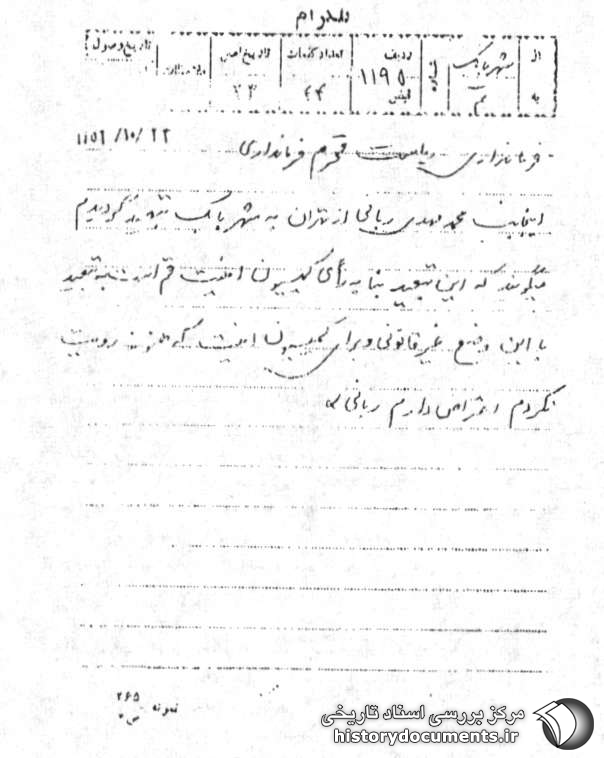 تلگرام
از شهر بابک
به قم
شماره
ردیف ۱۱۹۵
قبض
تعداد کلمات ۴۴
تاریخ اصل ۲۳
تاریخ وصول
فرمانداری ریاست محترم فرمانداری ۲۲ /۱۰/
اینجانب محمد مهدی ربانی از تهران به شهر بابک تبعید گردیدم
میگویند که این تبعید بنا به رأی کمیسیون امنیت قم است به تبعید
با این وضع غیر قانونی و برای کمیسیون امنیت که هنوز رویت
نکردم اعتراض دارم ربانی
نمونه ۲۶۵
مرکز بررسی اسناد تاریخی
historydocuments.ir